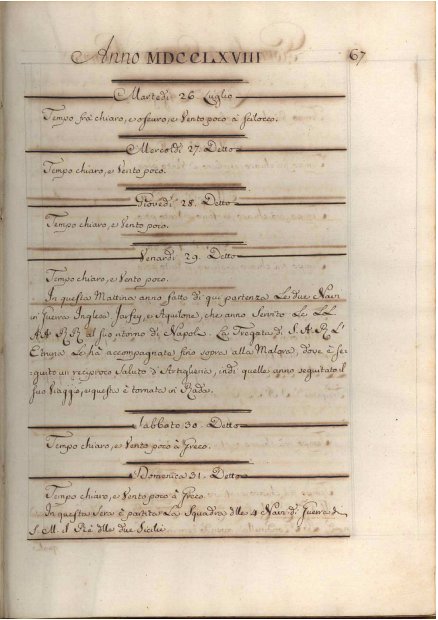 Anno MDCCLXVIII 67
Martedì 26 Luglio
Tempo frà chiaro, e oscuro, e Vento poco à Scilocco.
Mercoldì 27. Detto
Tempo chiaro, e Vento poco.
Giovedì 28. Detto
Tempo chiaro, e Vento poco.
Venardì 29. Detto
Tempo chiaro, e Vento poco.
In questa Mattina anno fatto di qui partenza Le due Navi
in Guerra Inglesi e Aquilone, che anno Servito Le LL
AA RR al suo ritorno di Napoli. La Fregata di S. A. R. L'
Etruria Le hà accompagnate fino sopra alla Malora, dove è se-
guito un reciproco Saluto d'Artiglieria, indi quelle anno seguitato il
suo Viaggio, e questa è tornata in Rada.
Sabbato 30. Detto
Tempo chiaro, e Vento poco à Greco.
Domenica 31. Detto
Tempo chiaro, e Vento poco à Greco.
In questa Sera è partita La Squadra dlle 4 Navi di Guerra di
S. M. I Rè dlle due Sicilie